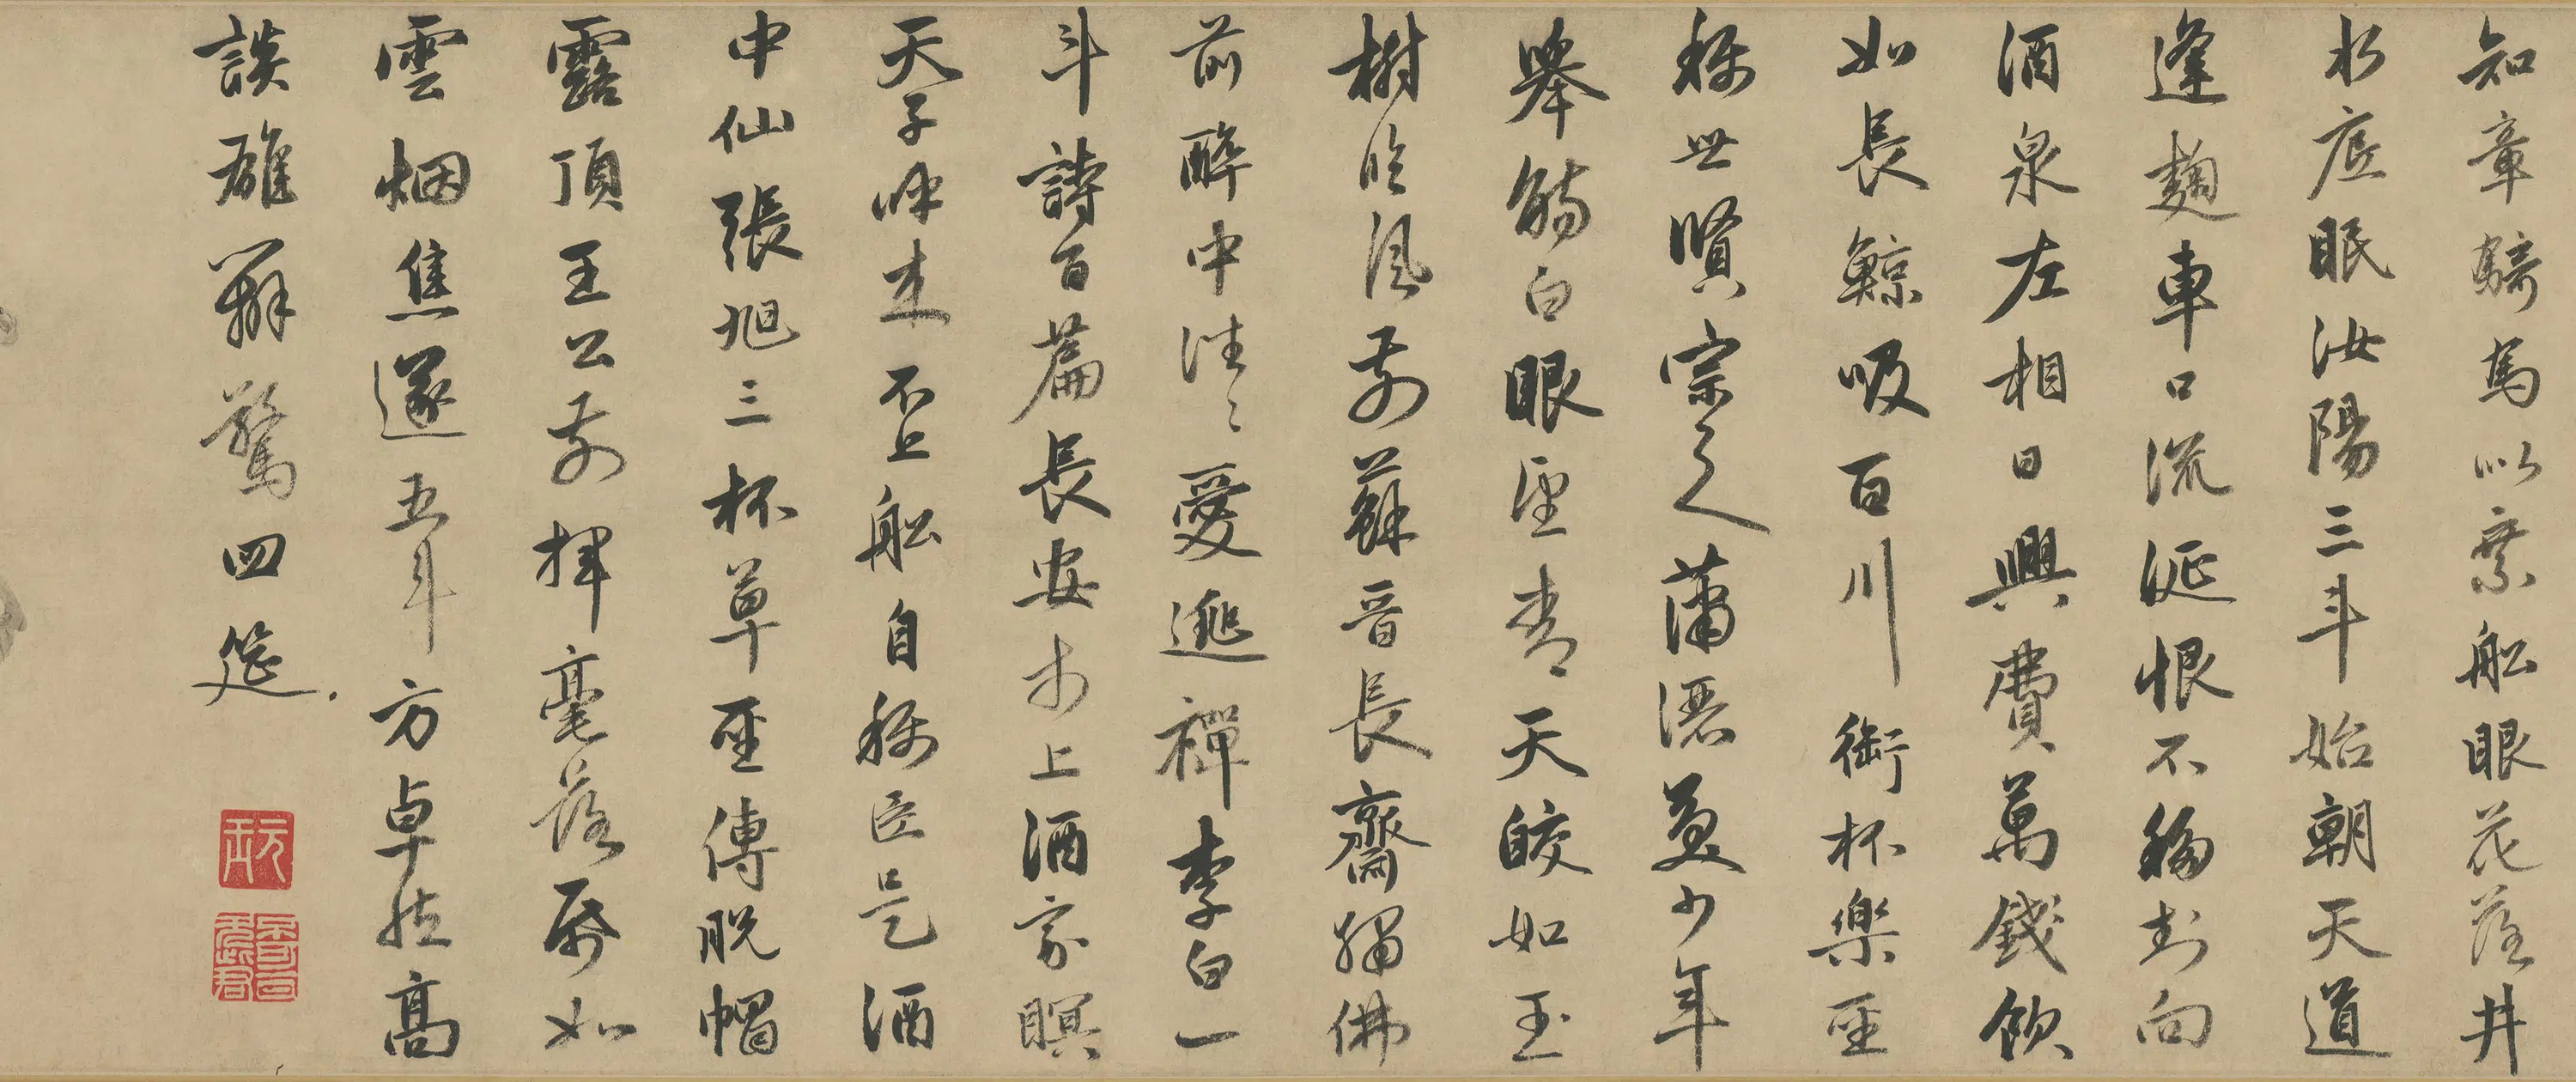 知章騎馬似乗舡眼花落井
水底眠汝陽三斗始朝天道
逢麹車口流涎恨不移封向
酒泉左相日興費萬錢飲
如長鯨吸百川銜杯樂聖
稱世賢宗之蕭灑美少年
舉觴白眼望青天皎如玉
樹臨風前蘇晉長齋繡佛
前醉中往〻愛逃禪李白一
斗詩百篇長安市上酒家瞑
天子呼来不上舡自稱臣是酒
中仙張旭三杯草聖傳脫帽
露頂王公前揮毫落帋如
雲烟焦遂五斗方卓然高
談雄辯驚四筵